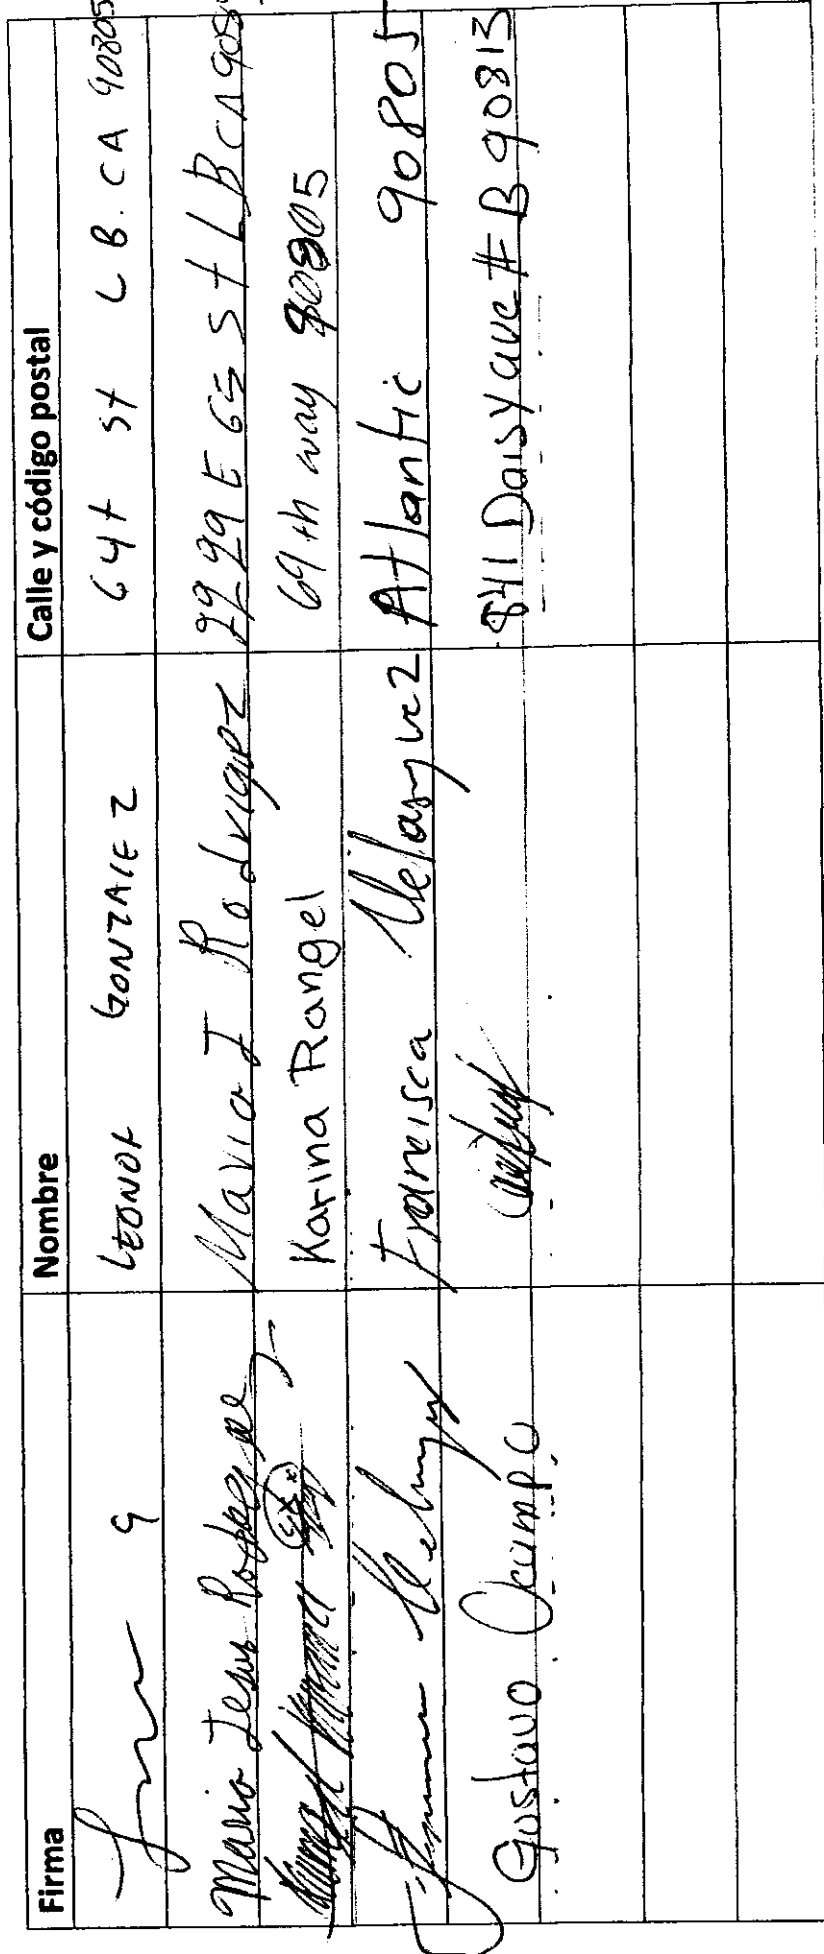 Firma Nombre Calle y código postal
LEONOR GONZALEZ 64t st L B. CA 90805
Maria Jesus Rodriguez Maria J Rodriguez 2999 E 65 st LB CA 905
Karina Rangel 69th way 90805
Francisca Velasquez Atlantic 90805
Gustavo Ocampo 841 Daisy ave # B 90813